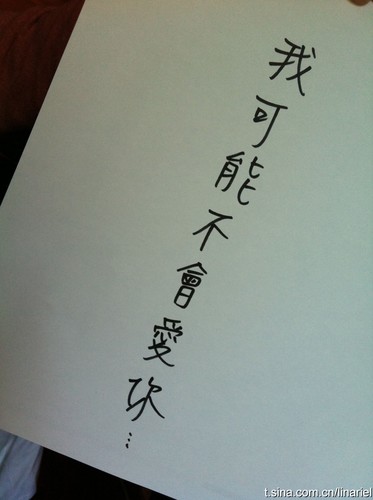 我可能不會愛你...
t.sina.com.cn/linariel